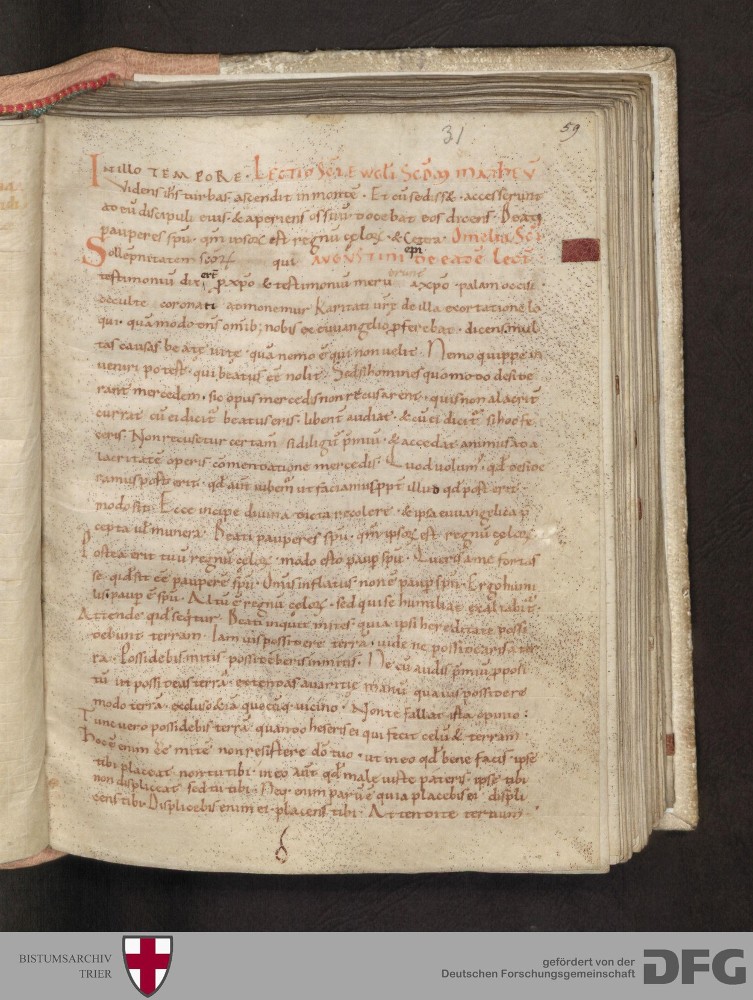 31 59
IN illo TEMPORE. Lectio sc̄i ewḡli scd̄m mathēu
Videns ih̄s turbas ascendit in montē. Et cū sediss& accesserunt
ad eū discipuli eius. & aperiens os suū docebat eos dicens. Beati
pauperes spū. qm̄ ipsoꝝ est regnū cęloꝝ. & cetera. Omelia Sc̄i
Sollēpnitatem sc̄oꝝ qui AVGVSTINI epi de eadē lect
testimoniū dix̄ert p xp̄o & testimoniū meruerunt a xp̄o. palam occisi
occulte coronati admonemur Karitati urē de illa exortatione lo
qui. quāmodo dn̄s omib; nobis ex euuangelio p̄ferebat. dicens mul
tas causas beatę uitę. quā nemo ē qui non uelit. Nemo quippe in
ueniri potest. qui beatus ēe nolit. Sed si homines quomodo deside
rant mercedem. sic opus mercedis non recusarent. quis non alacrit̄
currat cū ei dicit̄ beatus eris. libent̄ audiat. & cū ei dicit̄ si hoc fe
ceris. Non recusetur certam̄ si diligit̄ p̄miū. & accedat animus ad a
lacritatē operis cōmendatione mercedis. Quod uolum̄. qd̄ deside
ramus post erit. qd̄ aut̄ iubem̄ ut faciamus ppt̄ illud qd̄ post erit
modo fit. Ecce incipe diuina dicta recolere. & ipsa euuangelica p̄
cepta ul̄ munera. Beati pauperes spū. qm̄ ipsoꝝ est regnū cęloꝝ
Postea erit tuū regnū cęloꝝ. modo esto paup spū. Queris a me fortas
se quid sit ēe pauperē spū. Omis inflatus non ē paup spū. Ergo humi
lis paup ē spū. Altū ē regnū cęloꝝ. sed qui se humiliat exaltabit̄.
Attende quid sequitur. Beati inquit mites. quia ipsi hereditate possi
debunt terram. Iam uis possidere terrā. uide ne possidearis a ter
ra. Possidebis mitis possideberis inmitis. Ne cū audis p̄miū pposi
tū ut possideas terrā. extendas auaritię manū qua uis possidere
modo terrā. excluso etiā quocūq; uicino. Non te fallat ista opinio:
Tunc uero possidebis terrā. quando heseris ei qui fecit celū & terram
Hoc ē enim ēe mitē non resistere dō tuo. ut in eo qd̄ bene facis ipse
tibi placeat non tu tibi. in eo aut̄ qd̄ male iuste pateris. ipse tibi
non displiceat sed tu tibi. Neq; enim paruū ē quia placebis ei displi
cens tibi. Displicebis enim ei. placens tibi. Attendite tertium
BISTUMSARCHIV
TRIER
gefördert von der
Deutschen Forschungsgemeinschaft
DFG